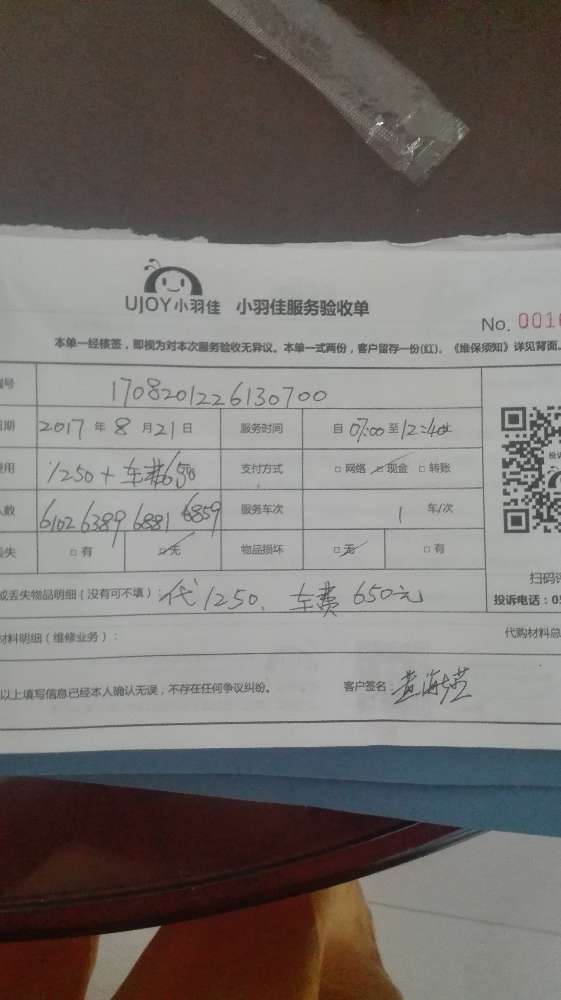 UJOY小羽佳 小羽佳服务验收单
No. 001
本单一经核签,即视为对本次服务验收无异议。本单一式两份,客户留存一份(红)。《维保须知》详见背面。
号 1708201226130700
期 2017 年 8 月 21 日 服务时间 自 07:00 至 12:40止
用 1250 + 车费650 支付方式 □ 网络 □ 现金 □ 转账
数 6102 6389 6881 6859 服务车次 1 车/次
失 □ 有 □ 无 物品损坏 □ 无 □ 有
或丢失物品明细(没有可不填): 代 1250、车费 650元
扫码
投诉电话:05
材料明细(维修业务): 代购材料总
以上填写信息已经本人确认无误,不存在任何争议纠纷。 客户签名: